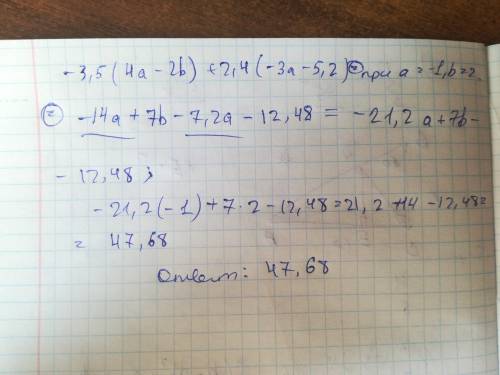 -3,5(4a-2b)+2,4(-3a-5,2)=при a=-1,b=2
= -14a+7b-7,2a-12,48= -21,2a+7b-
-12,48;
-21,2(-1)+7·2-12,48=21,2+14-12,48=
= 47,68
Ответ: 47,68